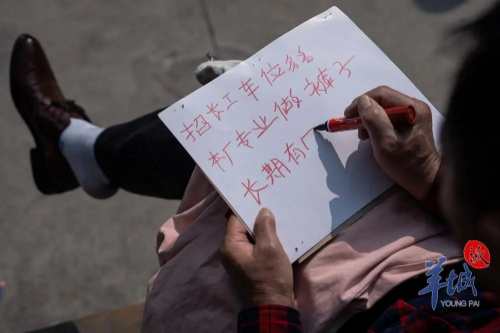 招长工车位多名
本厂专业做裤子
长期有厂
羊城派
YOUNG PAI